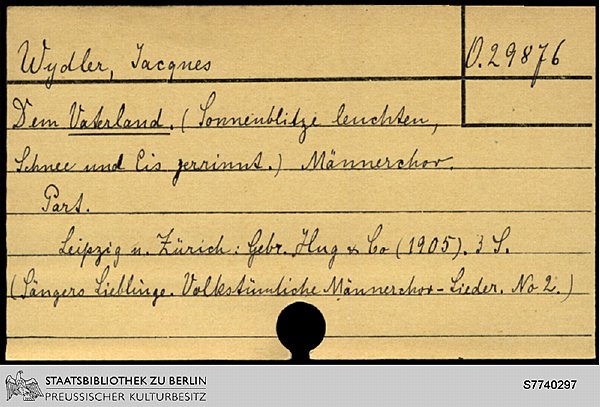 Wydler, Jacques
O.29876
Dem Vaterland. (Sonnenblitze leuchten,
Schnee und Eis zerrinnt.) Männerchor.
Part.
Leipzig u. Zürich: Gebr. Hug & Co (1905). 3 S.
(Sängers Lieblinge. Volkstümliche Männerchor-Lieder. No 2.)
STAATSBIBLIOTHEK ZU BERLIN
PREUSSISCHER KULTURBESITZ
S7740297